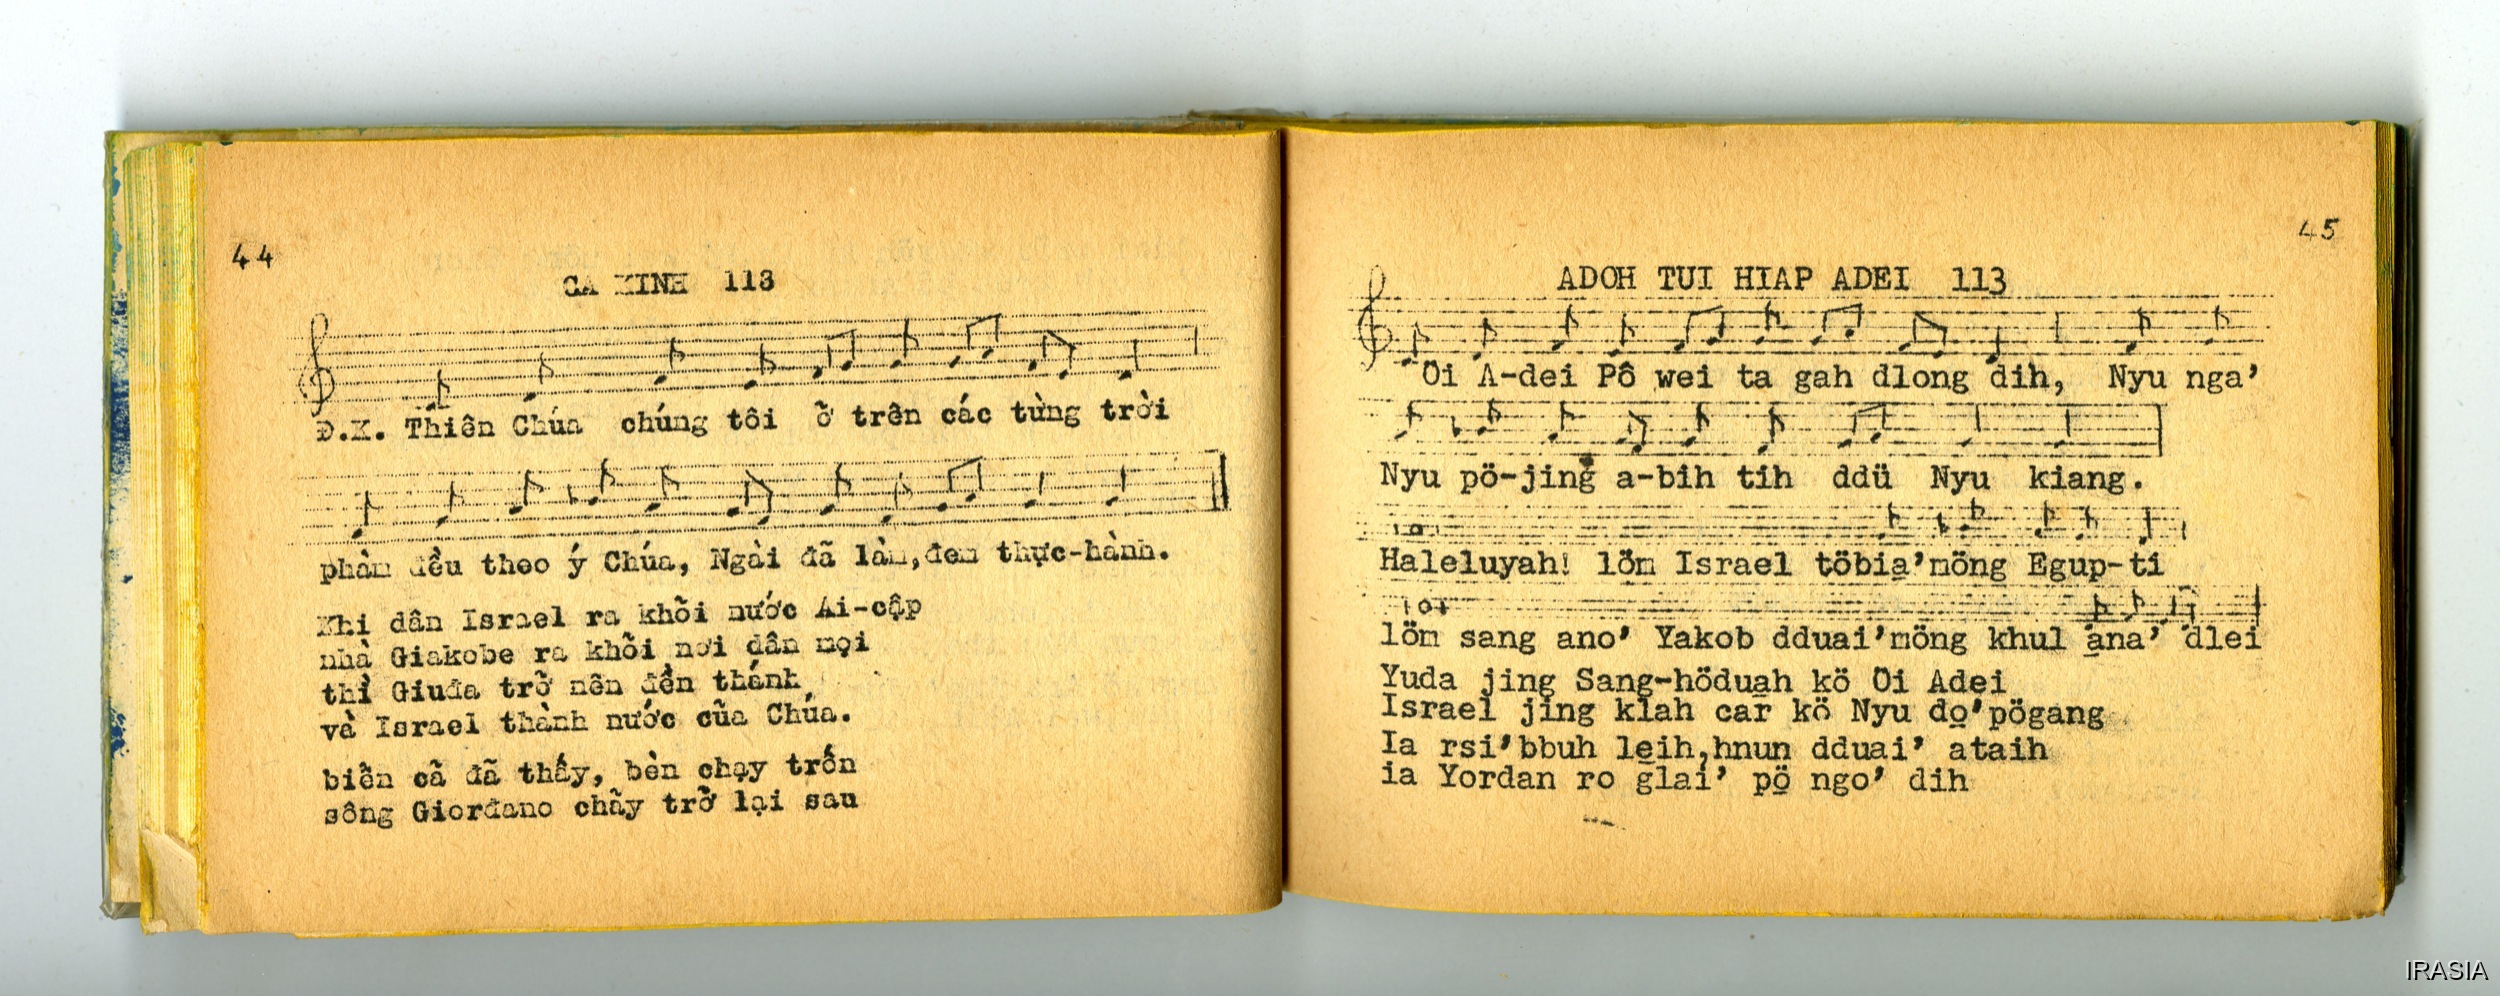 44
CA KINH 113
Đ.K. Thiên Chúa chúng tôi ở trên các từng trời
phàm đều theo ý Chúa, Ngài đã làm,đem thực-hành.
Khi dân Israel ra khỏi nước Ai-cập
nhà Giakobe ra khỏi nơi dân mọi
thì Giuđa trở nên đền thánh
và Israel thành nước của Chúa.
biển cả đã thấy, bèn chạy trốn
sông Giorđano chảy trở lại sau
45
ADOH TUI HIAP ADEI 113
Öi A-dei Pô wei ta gah dlong dih, Nyu nga'
Nyu pö-jing a-bih tih ddü Nyu kiang.
Haleluyah! löm Israel töbia̱'möng Egup-ti
löm sang ano' Yakob dduai'möng khul a̱na' dlei
Yuda jing Sang-hödua̱h kö Öi Adei
Israel jing klah car kö Nyu do̱'pögang
Ia rsi'bbuh le̱ih,hnun dduai' ataih
ia Yordan ro glai' pö̱ ngo' dih
IRASIA